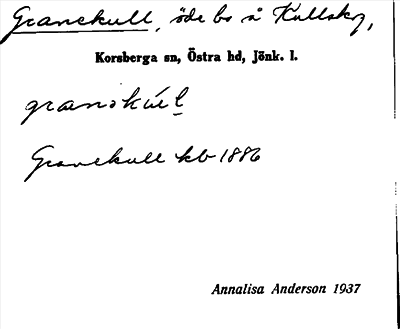 Granekull, öde bs å Kullskog,
Korsberga sn, Östra hd, Jönk. l.
granəkúl
Granekull kb 1886
Annalisa Anderson 1937